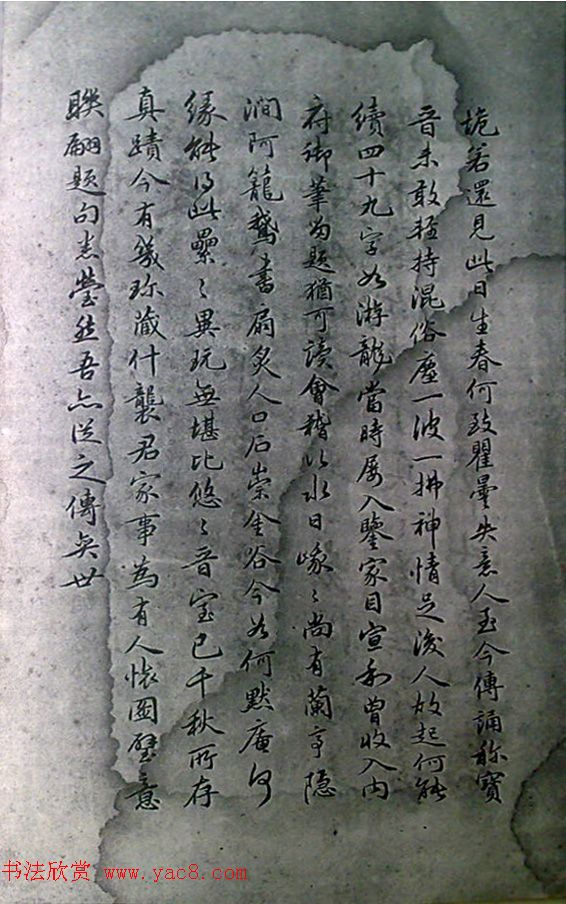 爐若還見此日生春何致瞿曇失意人至今傳誦称寶
晋未敢猛持混俗塵一波一拂神情足後人故起何能
續四十九字如游龍當時屡入鑒家目宣和曾收入内
府御筆為題猶可讀會稽以水日啄〻尚有蘭亭隐
澗阿籠鵝書扇炙人口石崇金谷今如何默庵何
緣能得此纍〻異玩無堪比悠〻晋室已千秋所存
真蹟今有幾珎藏什襲君家事為有人懐圖璧意
聨翩題句意瑩然吾亦從之傳奕世
书法欣赏 www.yac8.com